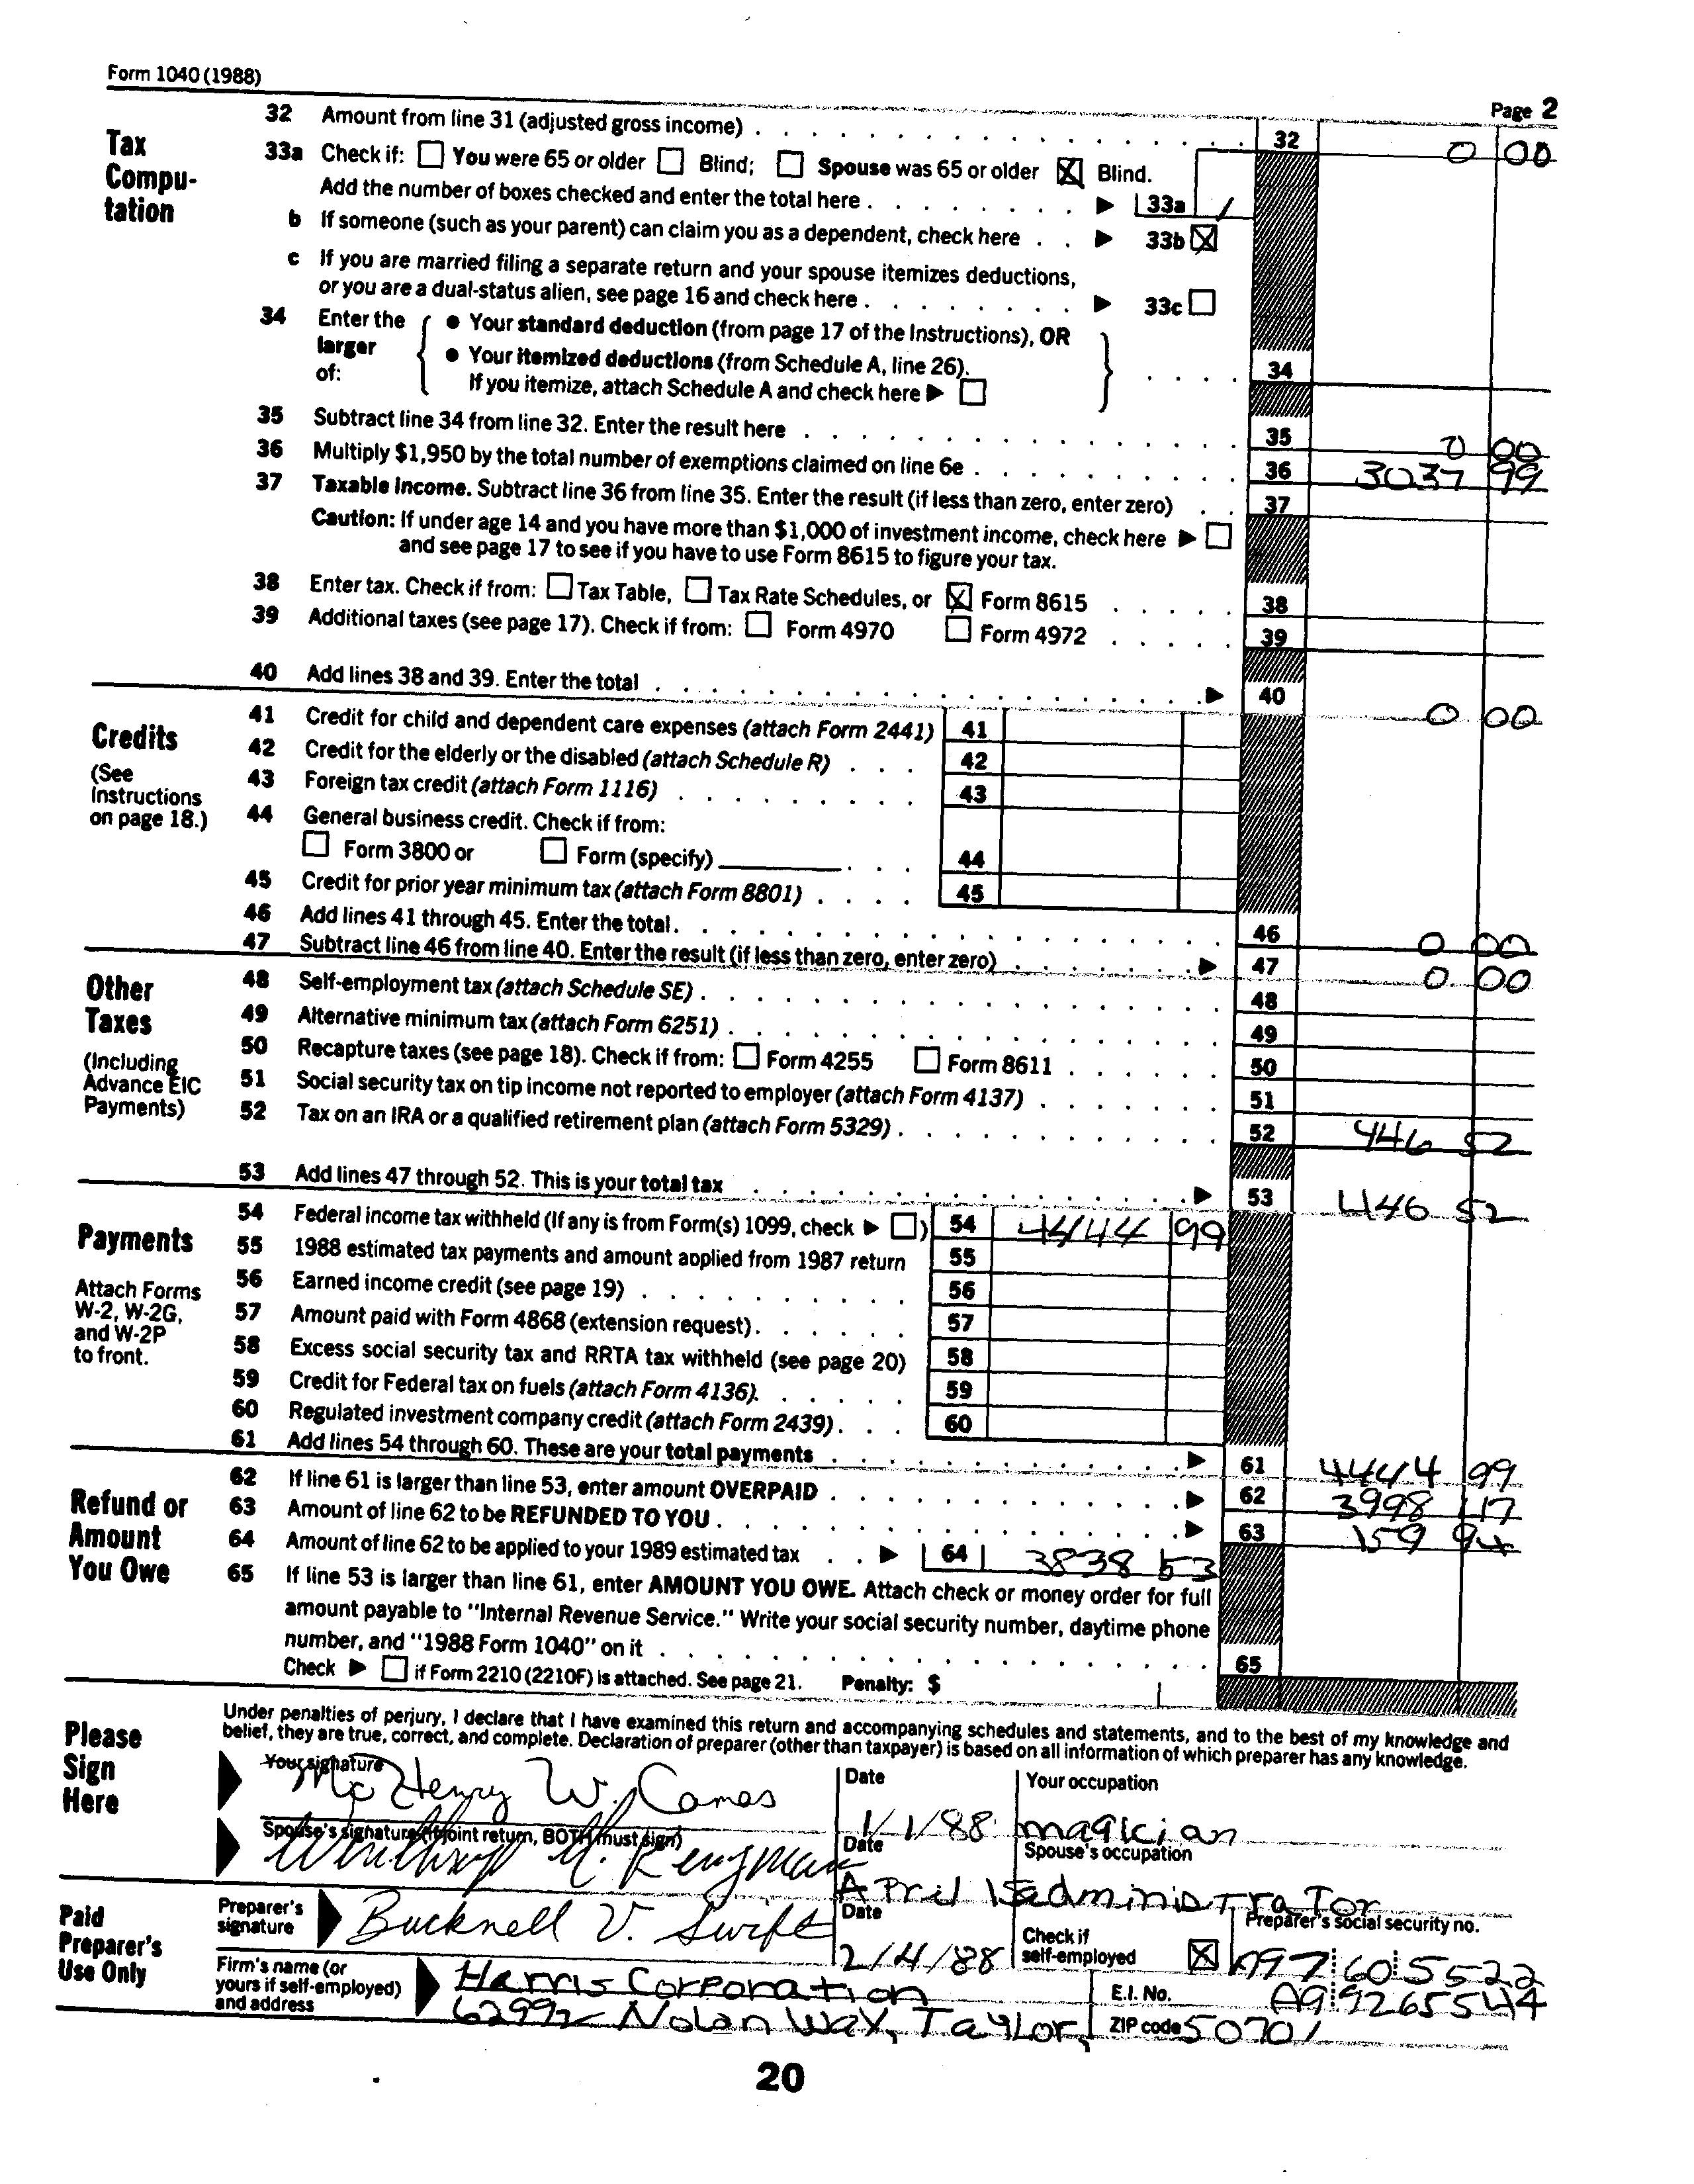 Form 1040 (1988)
Page 2
Tax Compu-tation
32 Amount from line 31 (adjusted gross income) 32 0 00
33a Check if: You were 65 or older Blind; Spouse was 65 or older X Blind.
Add the number of boxes checked and enter the total here 33a 1
b If someone (such as your parent) can claim you as a dependent, check here 33b X
c If you are married filing a separate return and your spouse itemizes deductions,
or you are a dual-status alien, see page 16 and check here 33c
34 Enter the larger of:
• Your standard deduction (from page 17 of the Instructions), OR
• Your itemized deductions (from Schedule A, line 26).
If you itemize, attach Schedule A and check here 34
35 Subtract line 34 from line 32. Enter the result here 35 0 00
36 Multiply $1,950 by the total number of exemptions claimed on line 6e 36 3037 99
37 Taxable income. Subtract line 36 from line 35. Enter the result (if less than zero, enter zero) 37
Caution: If under age 14 and you have more than $1,000 of investment income, check here
and see page 17 to see if you have to use Form 8615 to figure your tax.
38 Enter tax. Check if from: Tax Table, Tax Rate Schedules, or X Form 8615 38
39 Additional taxes (see page 17). Check if from: Form 4970 Form 4972 39
40 Add lines 38 and 39. Enter the total 40 0 00
Credits
(See Instructions on page 18.)
41 Credit for child and dependent care expenses (attach Form 2441) 41
42 Credit for the elderly or the disabled (attach Schedule R) 42
43 Foreign tax credit (attach Form 1116) 43
44 General business credit. Check if from:
Form 3800 or Form (specify) 44
45 Credit for prior year minimum tax (attach Form 8801) 45
46 Add lines 41 through 45. Enter the total 46 0 00
47 Subtract line 46 from line 40. Enter the result (if less than zero, enter zero) 47 0 00
Other Taxes
(Including Advance EIC Payments)
48 Self-employment tax (attach Schedule SE) 48
49 Alternative minimum tax (attach Form 6251) 49
50 Recapture taxes (see page 18). Check if from: Form 4255 Form 8611 50
51 Social security tax on tip income not reported to employer (attach Form 4137) 51
52 Tax on an IRA or a qualified retirement plan (attach Form 5329) 52 446 52
53 Add lines 47 through 52. This is your total tax 53 446 52
Payments
Attach Forms W-2, W-2G, and W-2P to front.
54 Federal income tax withheld (If any is from Form(s) 1099, check ) 54 4444 99
55 1988 estimated tax payments and amount applied from 1987 return 55
56 Earned income credit (see page 19) 56
57 Amount paid with Form 4868 (extension request) 57
58 Excess social security tax and RRTA tax withheld (see page 20) 58
59 Credit for Federal tax on fuels (attach Form 4136). 59
60 Regulated investment company credit (attach Form 2439) 60
61 Add lines 54 through 60. These are your total payments 61 4444 99
Refund or Amount You Owe
62 If line 61 is larger than line 53, enter amount OVERPAID 62 3998 47
63 Amount of line 62 to be REFUNDED TO YOU 63 159 94
64 Amount of line 62 to be applied to your 1989 estimated tax 64 3838 53
65 If line 53 is larger than line 61, enter AMOUNT YOU OWE. Attach check or money order for full
amount payable to "Internal Revenue Service." Write your social security number, daytime phone
number, and "1988 Form 1040" on it 65
Check if Form 2210 (2210F) is attached. See page 21. Penalty: $
Please Sign Here
Under penalties of perjury, I declare that I have examined this return and accompanying schedules and statements, and to the best of my knowledge and
belief, they are true, correct, and complete. Declaration of preparer (other than taxpayer) is based on all information of which preparer has any knowledge.
Your signature Date Your occupation
Mc Henry W. Comes 1/1/88 magician
Spouse's signature (if joint return, BOTH must sign) Date Spouse's occupation
Winthrop April 15 administrator
Paid Preparer's Use Only
Preparer's signature Bucknell V. Swift Date 2/4/88 Check if self-employed X Preparer's social security no. A97 60 5522
Firm's name (or yours if self-employed) and address Harris Corporation E.I. No. A9 9265544
62992 Nolan Way, Taylor, ZIP code 50701
20